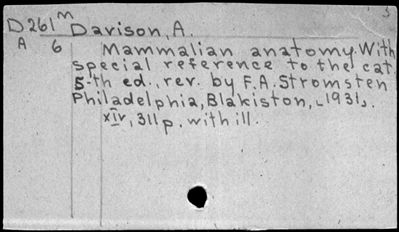 D261 m Davison, A.
A 6 Mammalian anatomy. With
special reference to the cat.
5-th ed., rev. by F.A. Stromsten
Philadelphia, Blakiston, ⌞1931⌟.
xiv, 311 p. with ill.